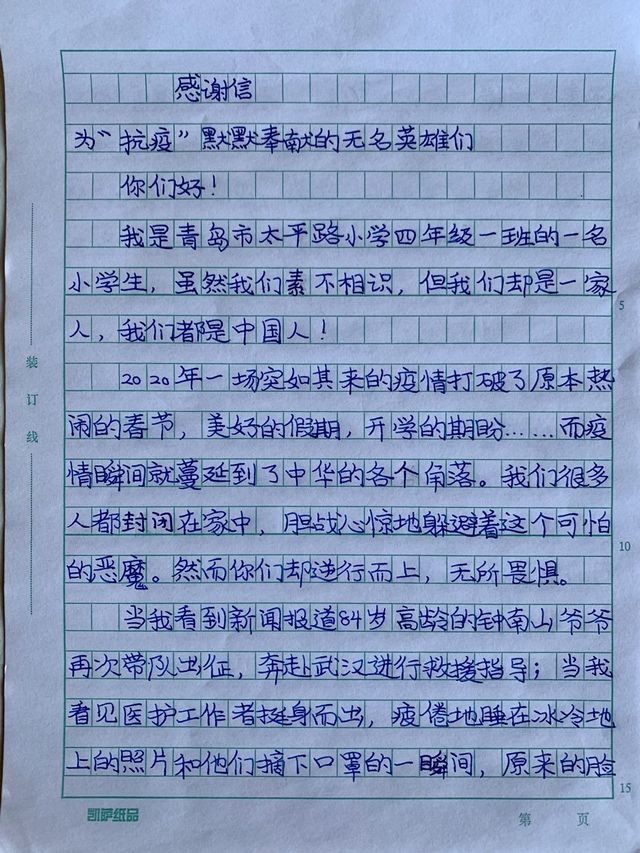 感谢信
为“抗疫”默默奉献的无名英雄们
你们好！
我是青岛市太平路小学四年级一班的一名
小学生，虽然我们素不相识，但我们却是一家
人，我们都是中国人！
2020年一场突如其来的疫情打破了原本热
闹的春节，美好的假期，开学的期盼……而疫
情瞬间就蔓延到了中华的各个角落。我们很多
人都封闭在家中，胆战心惊地躲避着这个可怕
的恶魔。然而你们却逆行而上，无所畏惧。
当我看到新闻报道84岁高龄的钟南山爷爷
再次带队出征，奔赴武汉进行救援指导；当我
看见医护工作者挺身而出，疲倦地睡在冰冷地
上的照片和他们摘下口罩的一瞬间，原来的脸
装订线
5
10
15
凯萨纸品
第 页